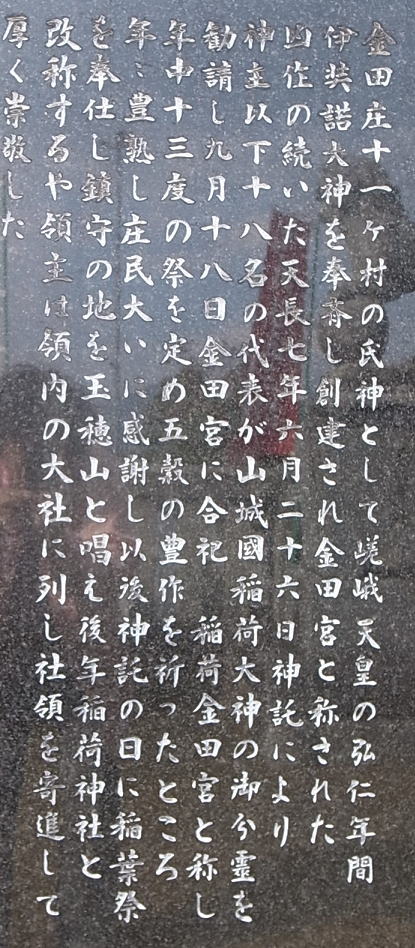 金田庄十一ヶ村の氏神として嵯峨天皇の弘仁年間
伊奘諾大神を奉斎し創建され金田宮と称された
凶作の続いた天長七年六月二十六日神託により
神主以下十八名の代表が山城國稲荷大神の御分霊を
勧請し九月十八日金田宮に合祀 稲荷金田宮と称し
年中十三度の祭を定め五穀の豊作を祈ったところ
年々豊熟し庄民大いに感謝し以後神託の日に稲葉祭
を奉仕し鎮守の地を玉穂山と唱え後年稲荷神社と
改称するや領主は領内の大社に列し社領を寄進して
厚く崇敬した